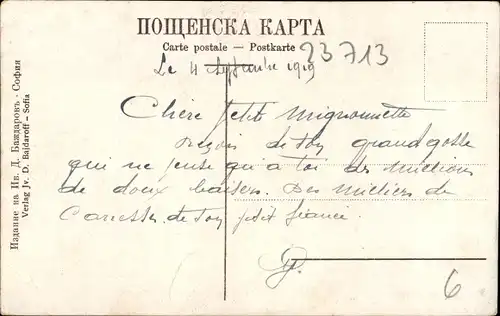 ПОЩЕНСКА КАРТА
Carte postale — Postkarte
23713
Le 4 Septembre 1919
Chère petit mignonnette
Reçois de ton grand gosse
qui ne pense qu'a toi des millions
de doux baisers. Des milliers de
Caresses de ton petit fiancé.
6
Издание на Ив. Д. Баждаровъ - София
Verlag Jv. D. Bajdaroff - Sofia